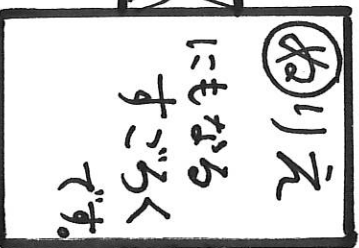 ぬりえ
にもなる
すごろく
です。